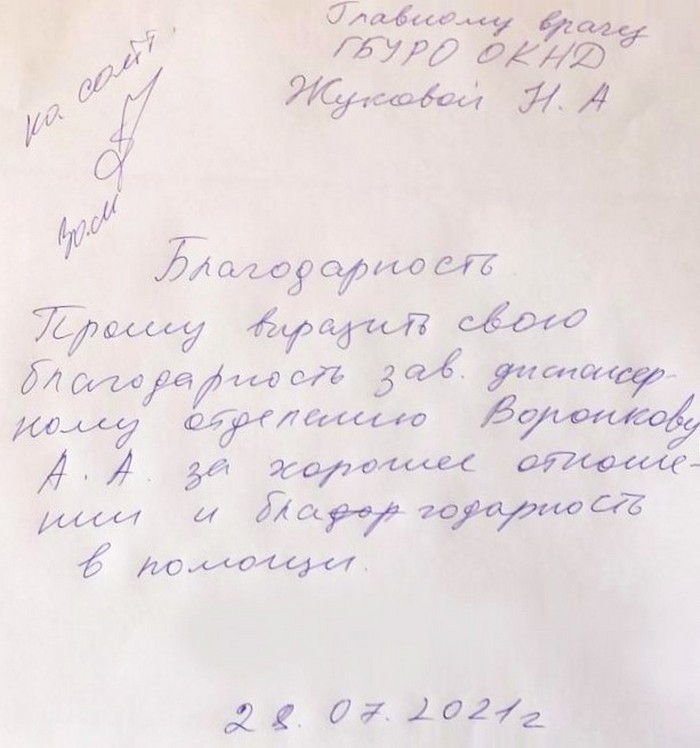 на сайт.
зам
Главному врачу
ГБУРО ОКНД
Жуковой Н. А
Благодарность
Прошу виразить свою
благодарность зав. диспансер-
ному отделению Воронкову
А. А. за хорошее отноше-
нии и благодарность
в помощи.
28.07.2021г